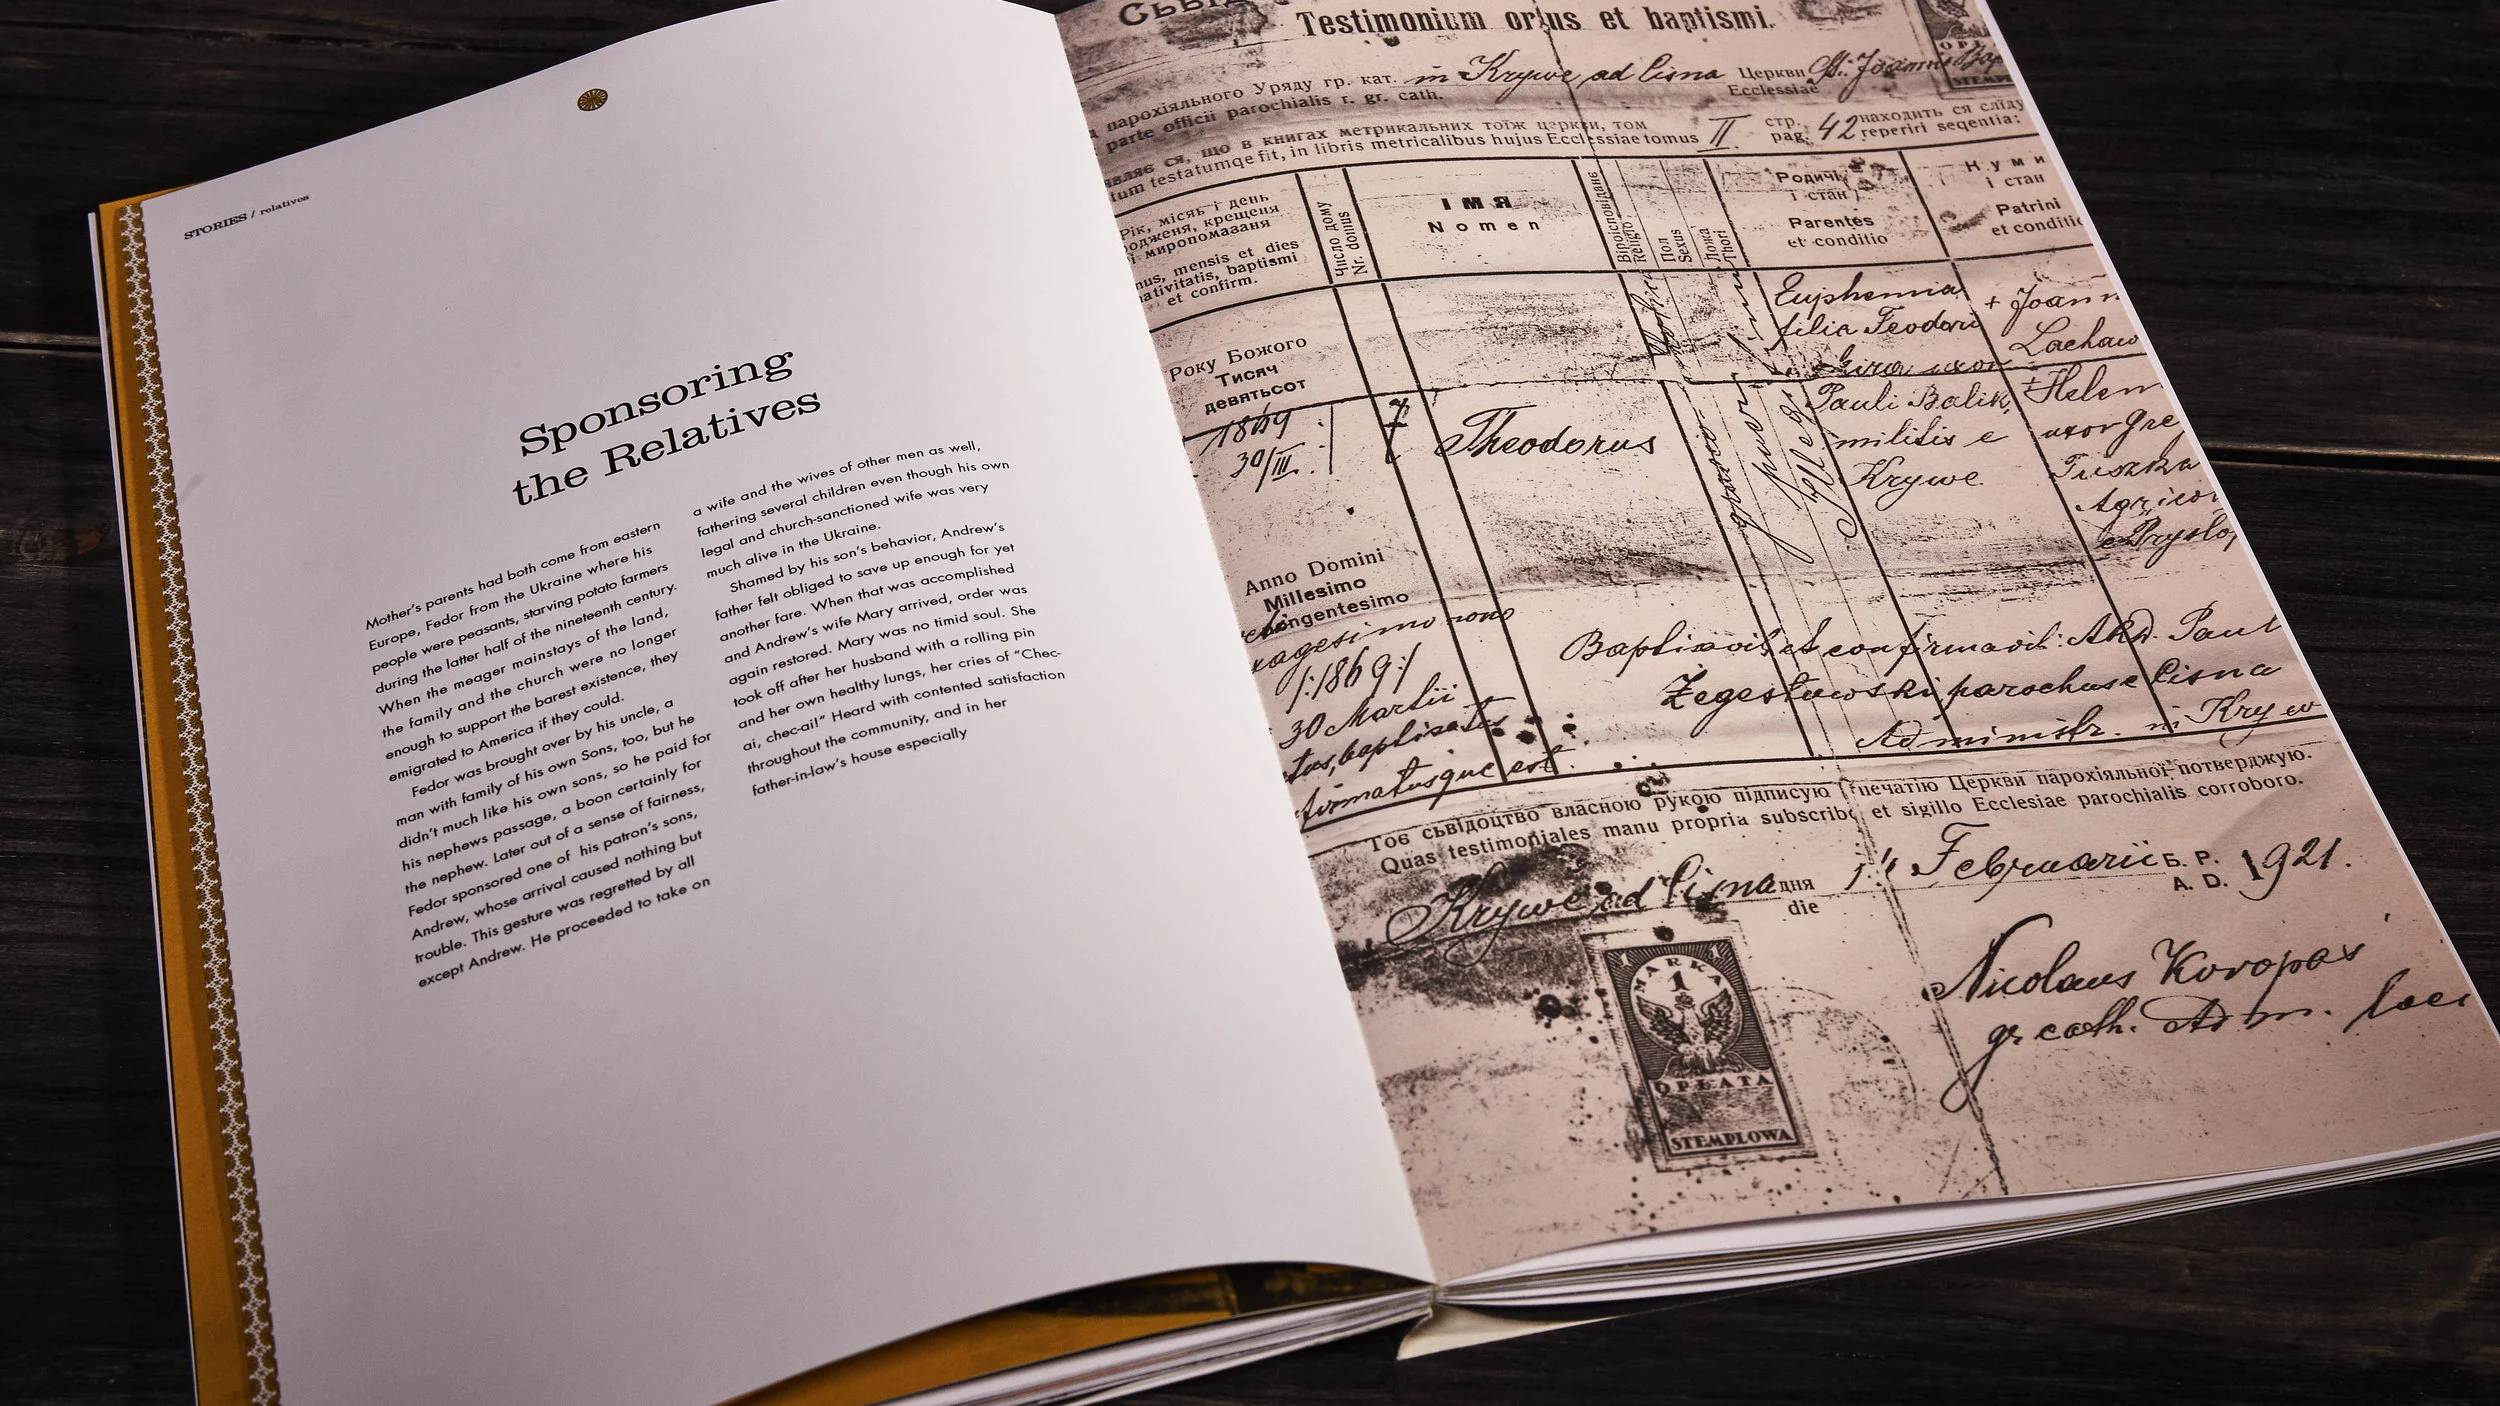 STORIES / relatives
Sponsoring
the Relatives
Mother's parents had both come from eastern
Europe, Fedor from the Ukraine where his
people were peasants, starving potato farmers
during the latter half of the nineteenth century.
When the meager mainstays of the land,
the family and the church were no longer
enough to support the barest existence, they
emigrated to America if they could.
Fedor was brought over by his uncle, a
man with family of his own Sons, too, but he
didn't much like his own sons, so he paid for
his nephews passage, a boon certainly for
the nephew. Later out of a sense of fairness,
Fedor sponsored one of his patron's sons,
Andrew, whose arrival caused nothing but
trouble. This gesture was regretted by all
except Andrew. He proceeded to take on
a wife and the wives of other men as well,
fathering several children even though his own
legal and church-sanctioned wife was very
much alive in the Ukraine.
Shamed by his son's behavior, Andrew's
father felt obliged to save up enough for yet
another fare. When that was accomplished
and Andrew's wife Mary arrived, order was
again restored. Mary was no timid soul. She
took off after her husband with a rolling pin
and her own healthy lungs, her cries of "Chec-
ai, chec-ai!" Heard with contented satisfaction
throughout the community, and in her
father-in-law's house especially
Testimonium ortus et baptismi.
парохіяльного Уряду гр. кат. in Krywe ad Cisna Церкви St. Joannis
parte officii parochialis r. gr. cath. Ecclessiae
ся, що в книгах метрикальних тоїж церкви, том II. стр. 42 находить ся слїду
testatumqe fit, in libris metricalibus hujus Ecclessiae tomus pag. reperiri seqentia:
Рік, місяь і день
крещеня
і миропомазаня
mensis et dies
baptismi
et confirm.
Число дому
Nr. domus
ІМЯ
Nomen
Віроісповідане
Religio
Пол
Sexus
Ложа
Thori
Родичі
і стан
Parentes
et conditio
Нуми
і стан
Patrini
et conditio
Року Божого
Тисяч
девятьсот
1869
30/III.
7
Theodorus
Euphemia
filia Teodori
Pauli Balik,
militis e
Krywe.
+ Joann
Lachaw
+ Helen
uxor Gre
Tuszka
Agricol
e Pryslo
Anno Domini
Millesimo
nono
/:1869:/
30 Martii
baptisatus
est.
Baptisavit et confirmavit: Paul
Żegestowski parochus e Cisna
Administr. in Krywe
Тоє сьвідоцтво власною рукою підписую і печатію Церкви парохіяльної потверджую.
Quas testimoniales manu propria subscribo et sigillo Ecclesiae parochialis corroboro.
Krywe ad Cisna дня Februarii Б. Р. 1921.
die A. D.
Nicolaus Koropas
gr. cath. Adm.
MARKA
1
OPŁATA
STEMPLOWA